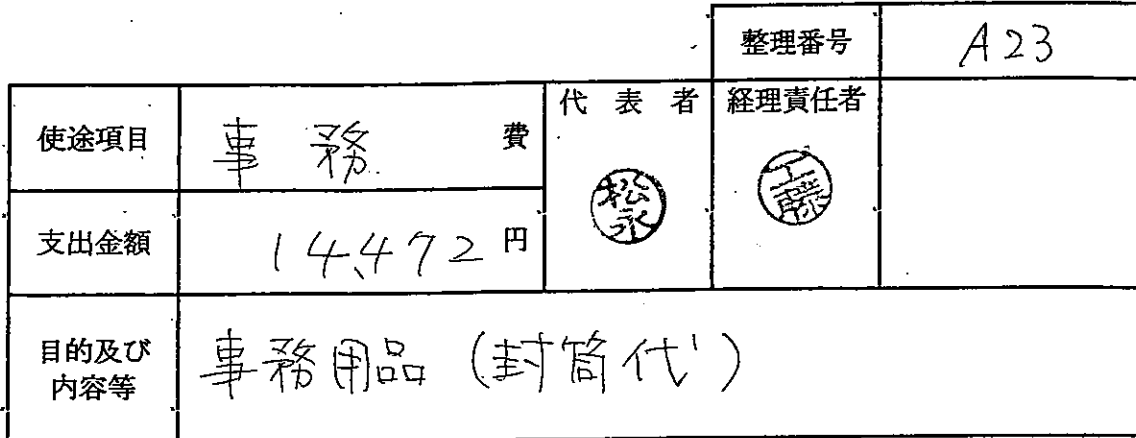 整理番号 A23
使途項目 事務費 代表者 経理責任者
松永 工藤
支出金額 14,472円
目的及び内容等 事務用品(封筒代)